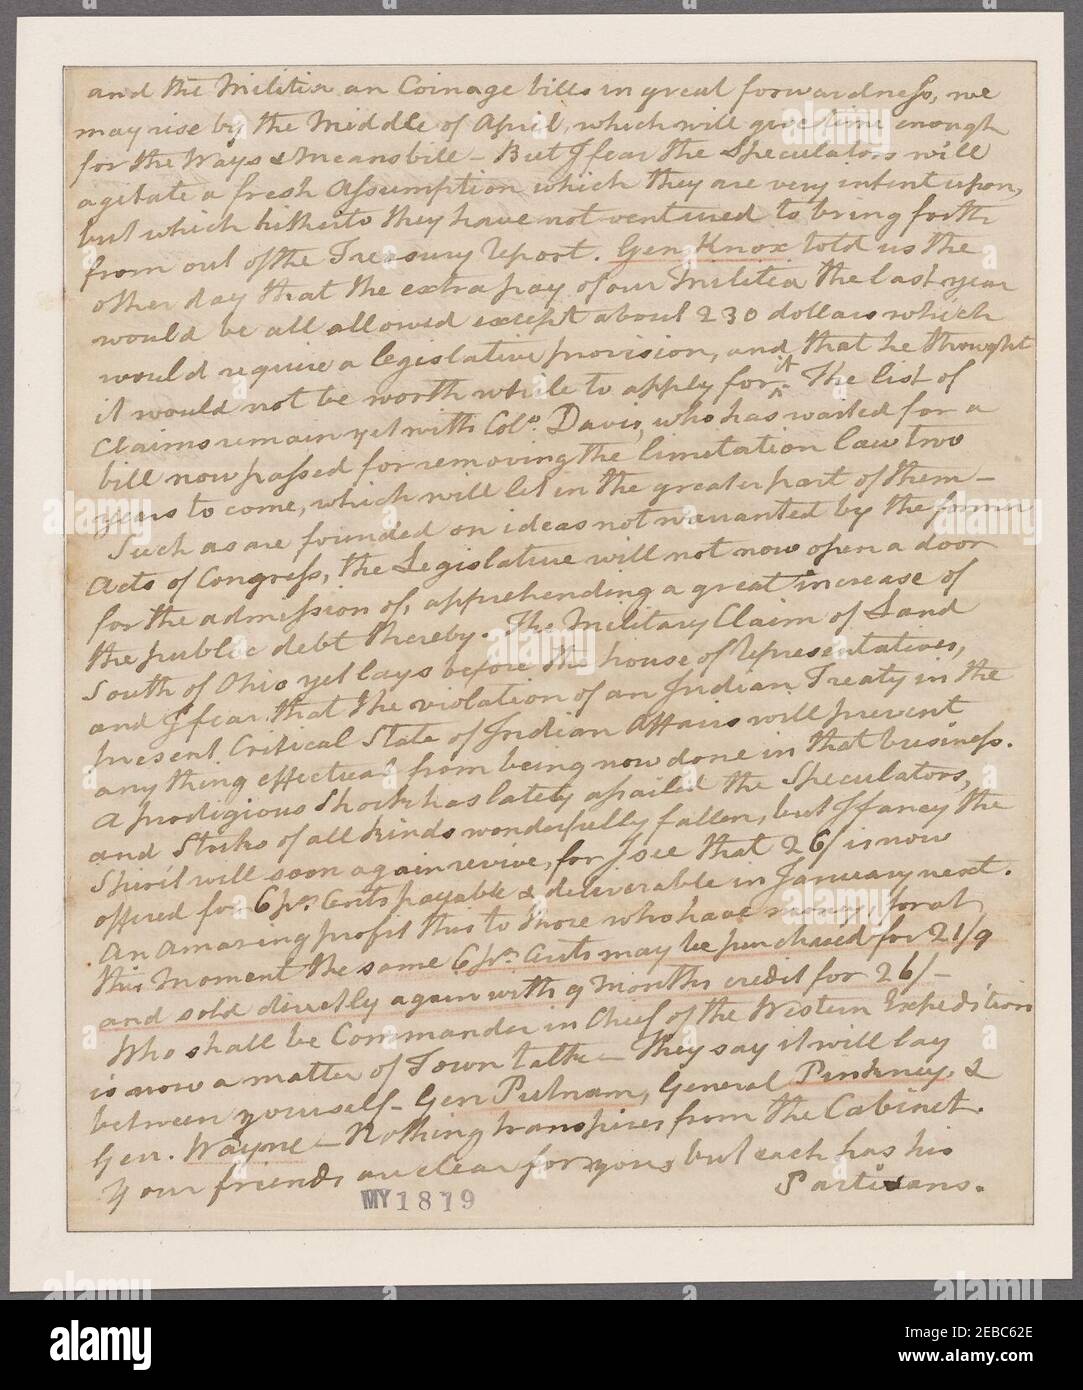 and the Militia an Coinage bills in great forwardness, we
may rise by the Middle of April, which will give time enough
for the Ways & Means bill – But I fear the Speculators will
agitate a fresh Assumption which they are very intent upon,
but which hitherto they have not ventured to bring forth
from out of the Treasury report. Gen Knox told us the
other day that the extra pay of our Militia the last year
would be all allowed except about 230 dollars which
would require a legislative provision, and that he thought
it would not be worth while to apply for it. The list of
Claims remain yet with Colo. Davis, who has waited for a
bill now passed for removing the limitation law two
years to come, which will let in the greater part of them –
Such as are founded on ideas not warranted by the former
Acts of Congress, the Legislature will not now open a door
for the admission of, apprehending a great increase of
the public debt thereby. The Military Claim of Land
South of Ohio yet lays before the house of Representatives,
and I fear that the violation of an Indian Treaty in the
present Critical State of Indian Affairs will prevent
any thing effectual from being now done in that business.
A prodigious Shock has lately assailed the Speculators,
and Stocks of all kinds wonderfully fallen, but I fancy the
Spirit will soon again revive, for I see that 26/ is now
offered for 6 pr. Cents payable & deliverable in January next.
An amazing profit this to those who have money, for at
this moment the same 6 pr. Cents may be purchased for 21/9
and sold directly again with 9 Months credit for 26/ –
Who shall be Commander in Chief of the Western Expedition
is now a matter of Town talk – They say it will lay
between yourself – Gen Putnam, General Pinkney, &
Gen. Wayne – Nothing transpires from the Cabinet.
Your friends are clear for you, but each has his
Partisans.
MY 1819
alamy
Image ID: 2EBC62E
www.alamy.com